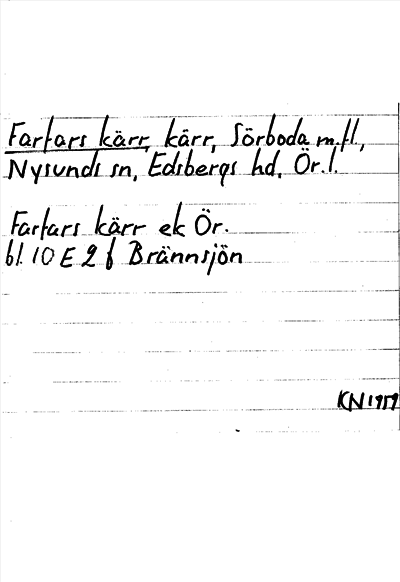 Farfars kärr, kärr, Sörboda m.fl.,
Nysunds sn, Edsbergs hd, Ör.l.
Farfars kärr ek Ör.
bl. 10 E 2 f Brännsjön
KN 1959